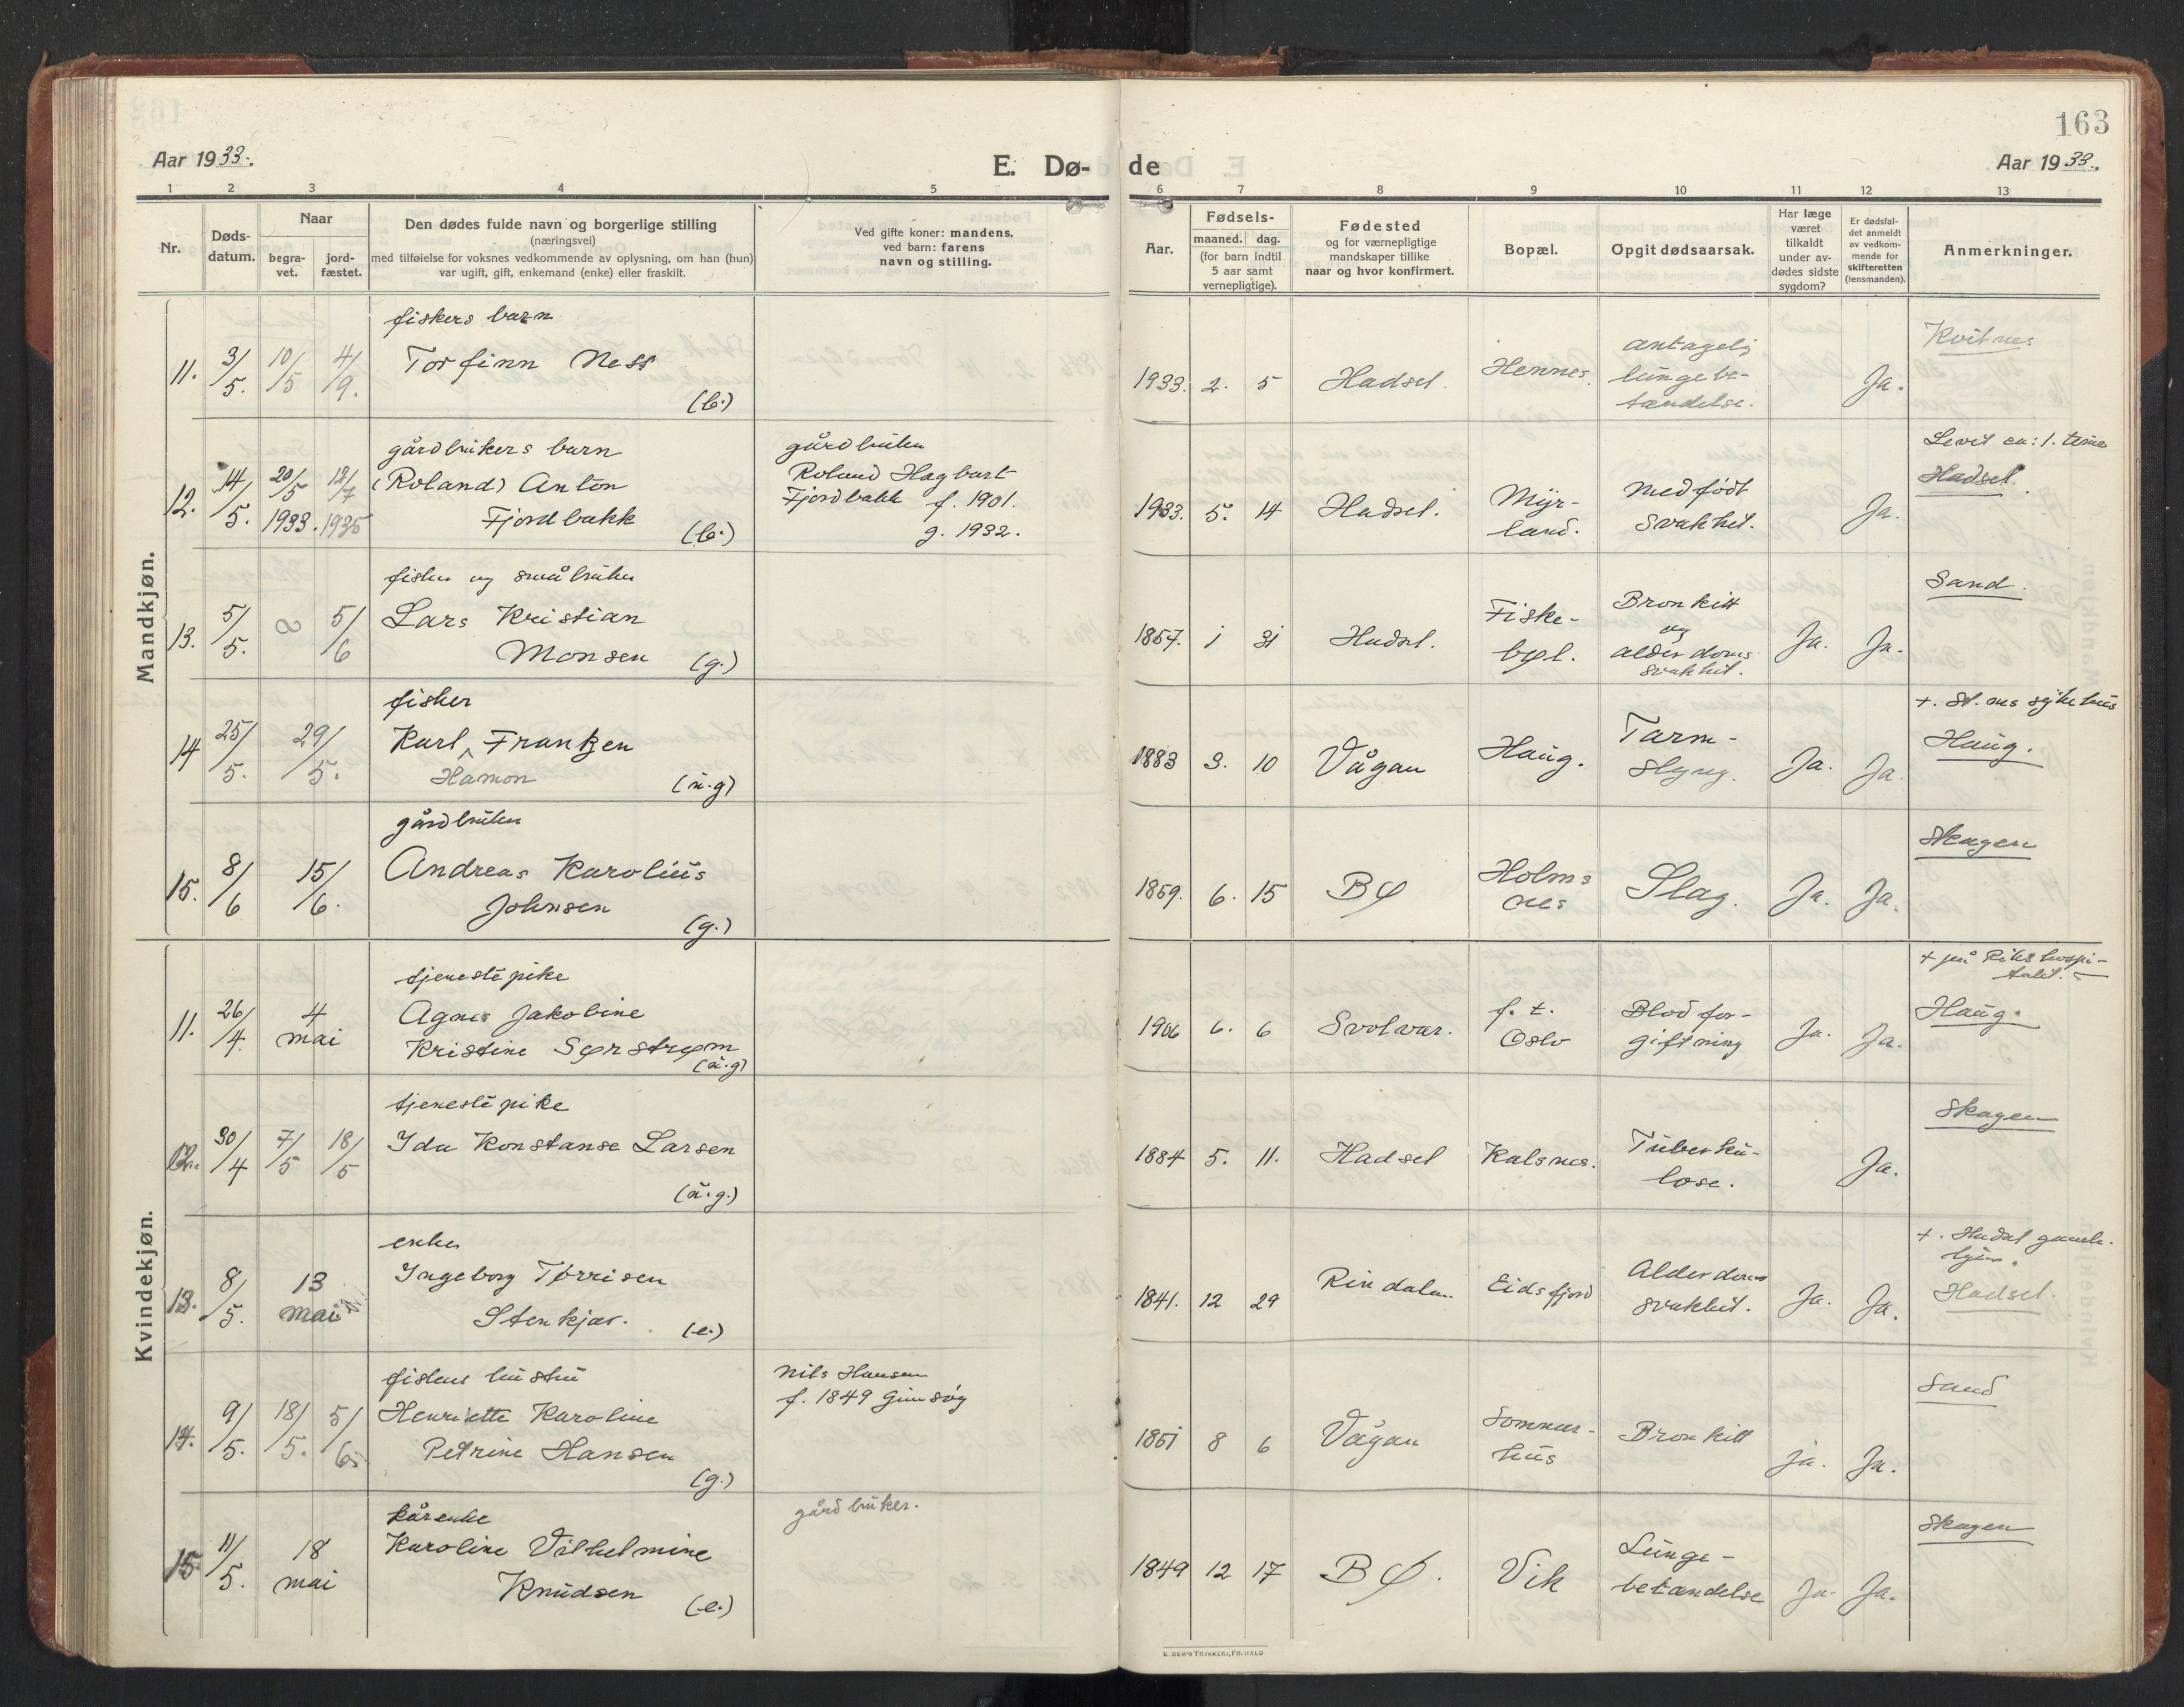 163
Aar 1933.
E. Dø-
de
Aar 1933.
1 2 3 4 5 6 7 8 9 10 11 12 13
Nr.
Døds-
datum.
Naar
begra-
vet.
jord-
fæstet.
Den dødes fulde navn og borgerlige stilling
(næringsvei)
med tilføielse for voksnes vedkommende av oplysning, om han (hun)
var ugift, gift, enkemand (enke) eller fraskilt.
Ved gifte koner: mandens,
ved barn: farens
navn og stilling.
Aar.
Fødsels-
maaned. dag.
(for barn indtil
5 aar samt
vernepligtige).
Fødested
og for værnepligtige
mandskaper tillike
naar og hvor konfirmert.
Bopæl.
Opgit dødsaarsak.
Har læge
været
tilkaldt
under av-
dødes sidste
sygdom?
Er dødsfal-
det anmeldt
av vedkom-
mende for
skifteretten
(lensmanden).
Anmerkninger.
Mandkjøn.
11. 3/5. 10/5 4/9.
fiskers barn
Torfinn Ness
(b.)
1933. 2. 5 Hadsel. Hennes.
antagelig
lungebe-
tændelse.
Ja.
Kvitnes
12. 14/5. 20/5 1933. 12/7 1935
gårdbrukers barn
(Roland) Anton
Fjordbakk
(b.)
gårdbruker
Roland Hagbart
Fjordbakk f. 1901.
g. 1932.
1933. 5. 14 Hadsel.
Myr-
land.
Medfødt
svakhet.
Ja.
Levet ca: 1. time
Hadsel.
13. 5/5. 5/6
fisker og småbruker
Lars Kristian
Monsen (g.)
1857. 1 31 Hadsel.
Fiske-
bøl.
Bronkitt
og
alderdoms
svakhet.
Ja. Ja.
Sand.
14 25/5. 29/5.
fisker
Karl Frantzen
Hamon
(u.g)
1883 3. 10 Vågan Haug.
Tarm-
slyng.
Ja. Ja.
+. St.nes sykehus
Haug.
15. 8/6 15/6.
gårdbruker
Andreas Karolius
Johnsen
(g.)
1859. 6. 15 Bø
Holms
nes
Slag.
Ja. Ja.
Skagen
Kvindekjøn.
11. 26/4. 4 mai
tjenestepike
Agnes Jakobine
Kristine Sørstrøm
(u.g)
1906 6. 6 Svolvær.
f. t.
Oslo
Blodfor-
giftning
Ja. Ja.
+ på Rikshospi-
talet.
Haug.
12. 30/4 7/5 18/5
tjenestepike
Ida Konstanse Larsen
(u.g.)
1884 5. 11. Hadsel Kalsnes.
Tuberku-
lose.
Ja.
Skagen
13. 8/5. 13 mai
enke
Ingeborg Tørrisen
Stenkjær. (e.)
1841. 12 29 Rindalen. Eidsfjord
Alderdoms
svakhet.
Ja. Ja.
+. Hadsel gamle-
hjem.
Hadsel.
14. 9/5. 18/5. 5/6
fiskers hustru
Henriette Karoline
Petrine Hansen
(g.)
Nils Hansen
f. 1849 Gimsøy
1851 8 6 Vågan
Sommar-
hus
Bronkitt
Ja. Ja.
Sand
15 11/5. 18 mai
kårenke
Karoline Vilhelmine
Knudsen (e.)
gårdbruker.
1849 12 17 Bø. Vik
Lunge-
betændelse
Ja. Ja.
Skagen